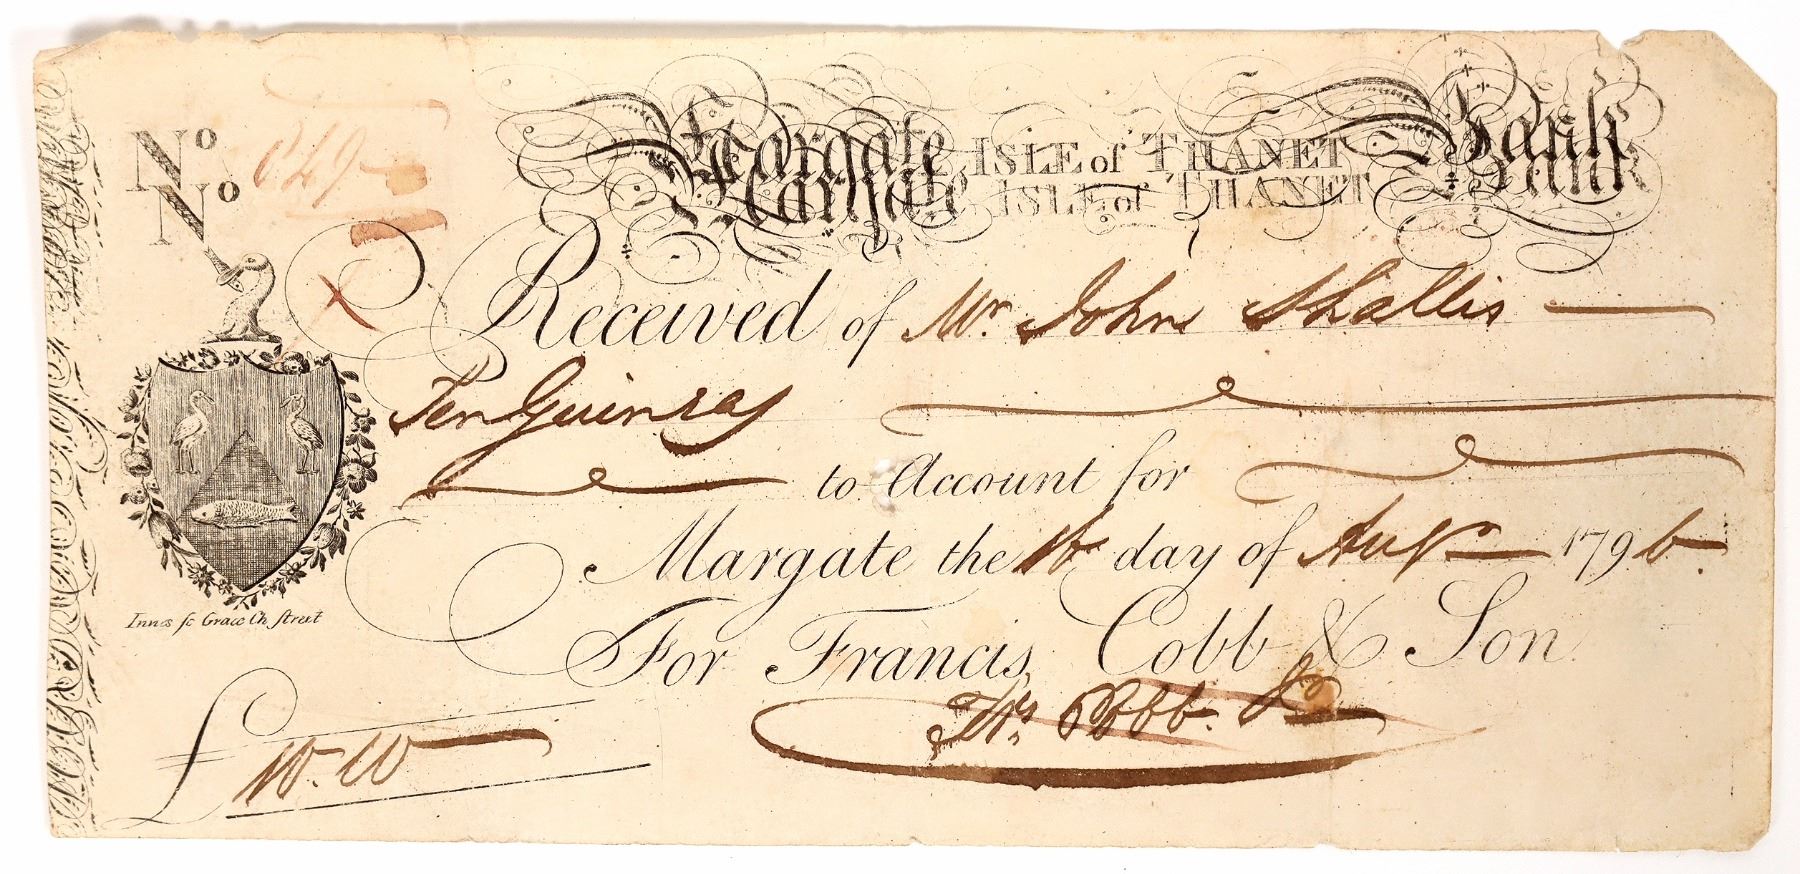 No 649
No
Margate ISLE of THANET Bank
Margate ISLE of THANET Bank
Received of Mr. John Shallis
Ten Guineas
to Account for
Margate the 10 day of Augt 1796.
For Francis, Cobb & Son
Frs. Cobb Jr
Innes sc Grace Ch. street
£ 10.10